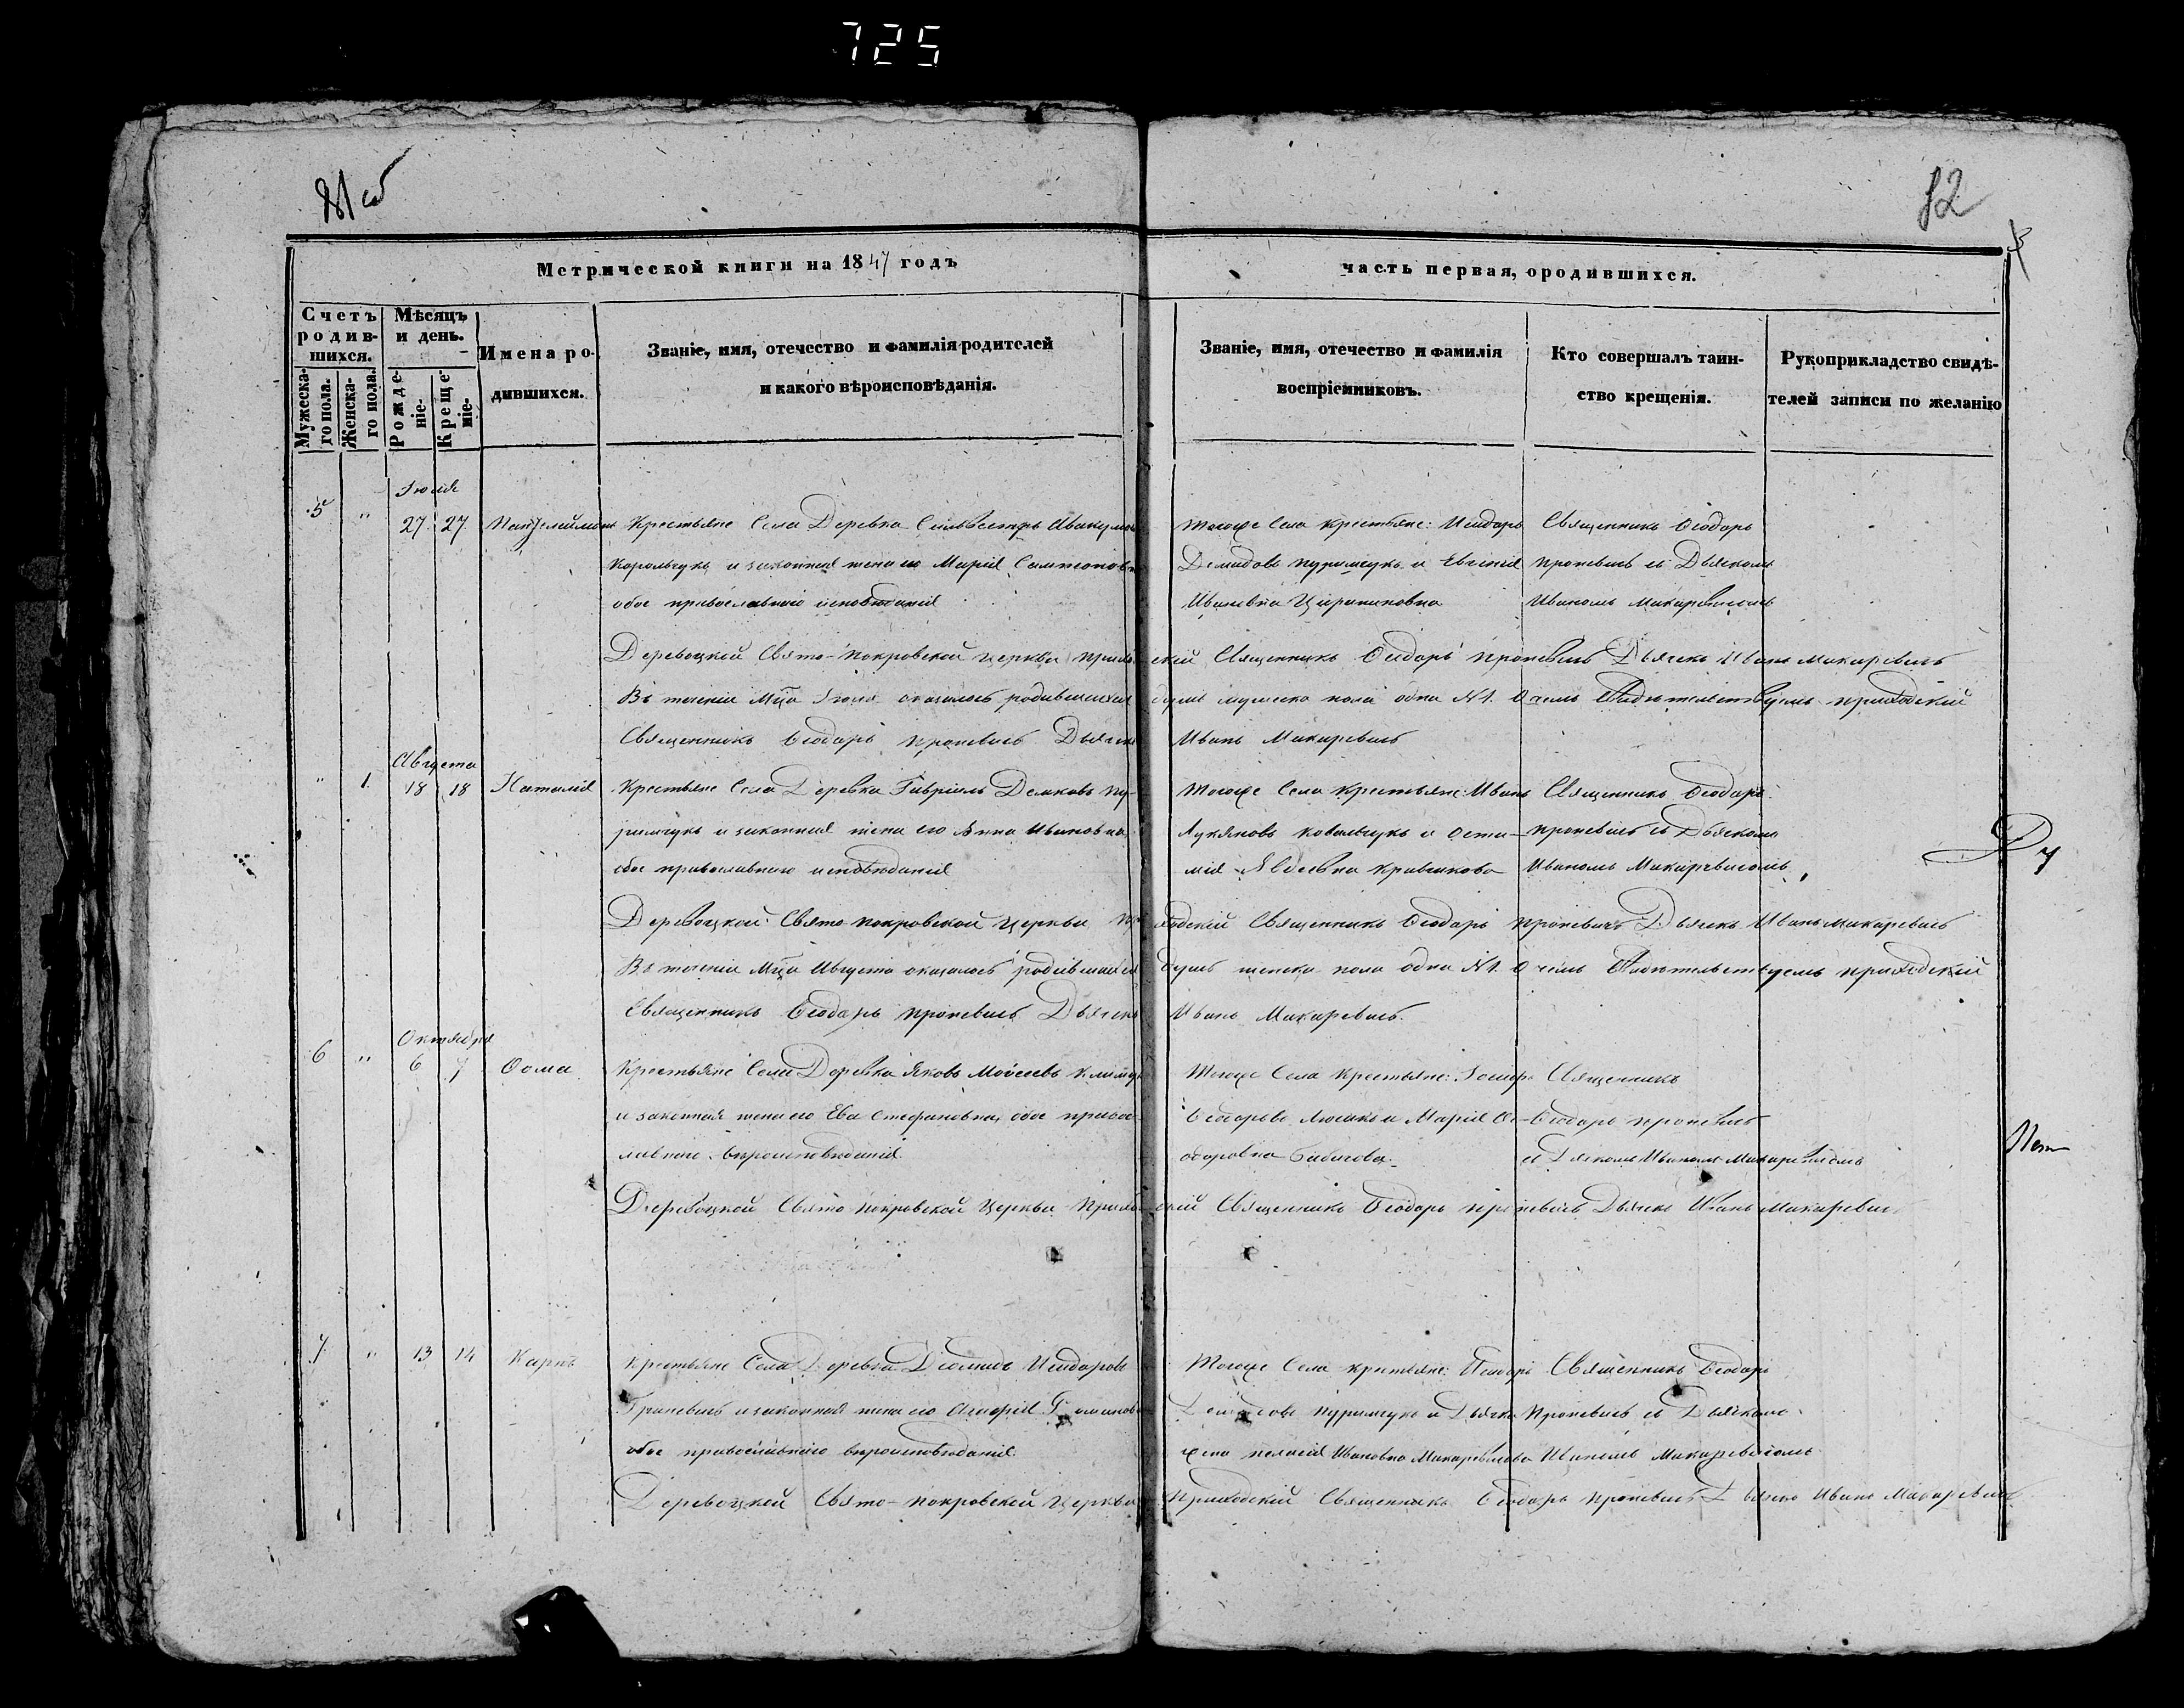 725
82
Метрической книги на 1847 годъ
часть первая, ородившихся.
Счетъ родив-шихся.
Мужеска-го пола.
Женска-го пола.
Мѣсяцъ и день.
Рожде-ніе.
Креще-ніе.
Имена ро-дившихся.
Званіе, имя, отечество и фамилія родителей
и какого вѣроисповѣданія.
Званіе, имя, отечество и фамилія
воспріемниковъ.
Кто совершалъ таин-
ство крещенія.
Рукоприкладство свидѣ-
телей записи по желанію
Іюля
5 " 27 27 Пантелеймонъ Крестьяне Села Деревка Сильвестръ Авакумовъ
Корольчукъ и законная жена его Марія Сампсоновна
обое православнаго исповѣданія
Тогоже Села крестьяне: Исидоръ
Демидовъ Пуримчукъ и Евгенія
Ивановна
Священникъ Ѳеодоръ
Проневичъ съ Дьячкомъ
Иваномъ Макаревичомъ
Деревоцкой Свято-Покровской церкви приходскій Священникъ Ѳеодоръ Проневичъ Дьячекъ Иванъ Макаревичъ
Въ теченіи Мца Іюля оказалось родившихся душъ мужеска пола одна №1. О чемъ Свидѣтельствуемъ приходскій
Священникъ Ѳеодоръ Проневичъ Дьячекъ Иванъ Макаревичъ
Августа
" 1 18 18 Наталія Крестьяне Села Деревка Гавріилъ Демковъ Пу-
римчукъ и законная жена его Анна Ивановна,
обое православнаго исповѣданія
Тогоже Села крестьяне: Иванъ
Лукяновъ Ковальчукъ и Ѳети-
мія Авдѣевна Кравчикова
Священникъ Ѳеодоръ
Проневичъ съ Дьячкомъ
Иваномъ Макаревичомъ,
Деревоцкой Свято Покровской Церкви приходскій Священникъ Ѳеодоръ Проневичъ Дьячекъ Иванъ Макаревичъ
Въ теченіи Мца Августа оказалось родившихся душъ женска пола одна №1. О чемъ Свидѣтельствуемъ приходскій
Священникъ Ѳеодоръ Проневичъ Дьячекъ Иванъ Макаревичъ.
Октября
6 " 6 7 Ѳома Крестьяне Села Деревка Яковъ Моисеевъ Климчукъ
и законная жена его Ева Стефановна, обое правос-
лавнаго вѣроисповѣданія
Тогоже Села Крестьяне:
Ѳеодоровъ и Марія Ѳе-
одоровна Бабичова.
Священникъ
Ѳеодоръ Проневичъ
съ Дячкомъ Иваномъ Макаревичомъ
Деревоцкой Свято Покровской Церкви Приходскій Священникъ Ѳеодоръ Проневичъ Дьячекъ Иванъ Макаревичъ
7 " 13 14 Карпъ Крестьяне Села Деревка Діомидъ Исидоровъ
и законная жена его
обое православнаго вѣроисповѣданія
Тогоже Села крестьяне: Исидоръ
Демидовъ Пуримчукъ и Дьячка
жена Пелагія Ивановна Макаревичова
Священникъ Ѳеодоръ
Проневичъ съ Дьячкомъ
Иваномъ Макаревичомъ
Деревоцкой Свято-Покровской Церкви Приходскій Священникъ Ѳеодоръ Проневичъ Дьячекъ Иванъ Макаревичъ